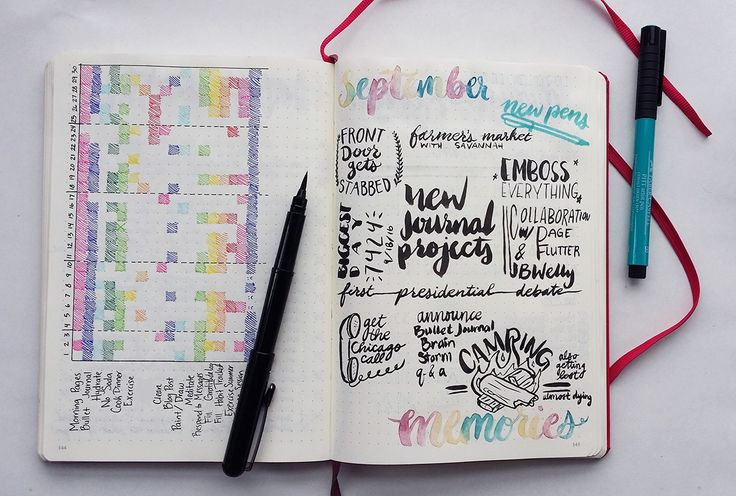 1 2 3 4 5 6 7 8 9 10 11 12 13 14 15 16 17 18 19 20 21 22 23 24 25 26 27 28 29 30
Morning Pages
Bullet Journal
Hydrate
No Soda
Cook Dinner
Exercise
Clean
Blog Post
Paint / Draw
Meditate
Respond to Messages
Fill Gratitude
Fill Habit Tracker
Exercise Summer
144
September
new pens
FRONT
Door
gets
STABBED
farmer's market
WITH SAVANNAH
*EMBOSS*
*EVERYTHING*
BIGGEST
DAY
7424
9/18/16
new
Journal
projects
COLLABORATION
W/ PAGE
& FLUTTER
JBWelly
first presidential debate
get
the
Chicago
call
announce
Bullet Journal
Brain
Storm
q & a
CAMPING
also
getting
lost
almost dying
memories
145